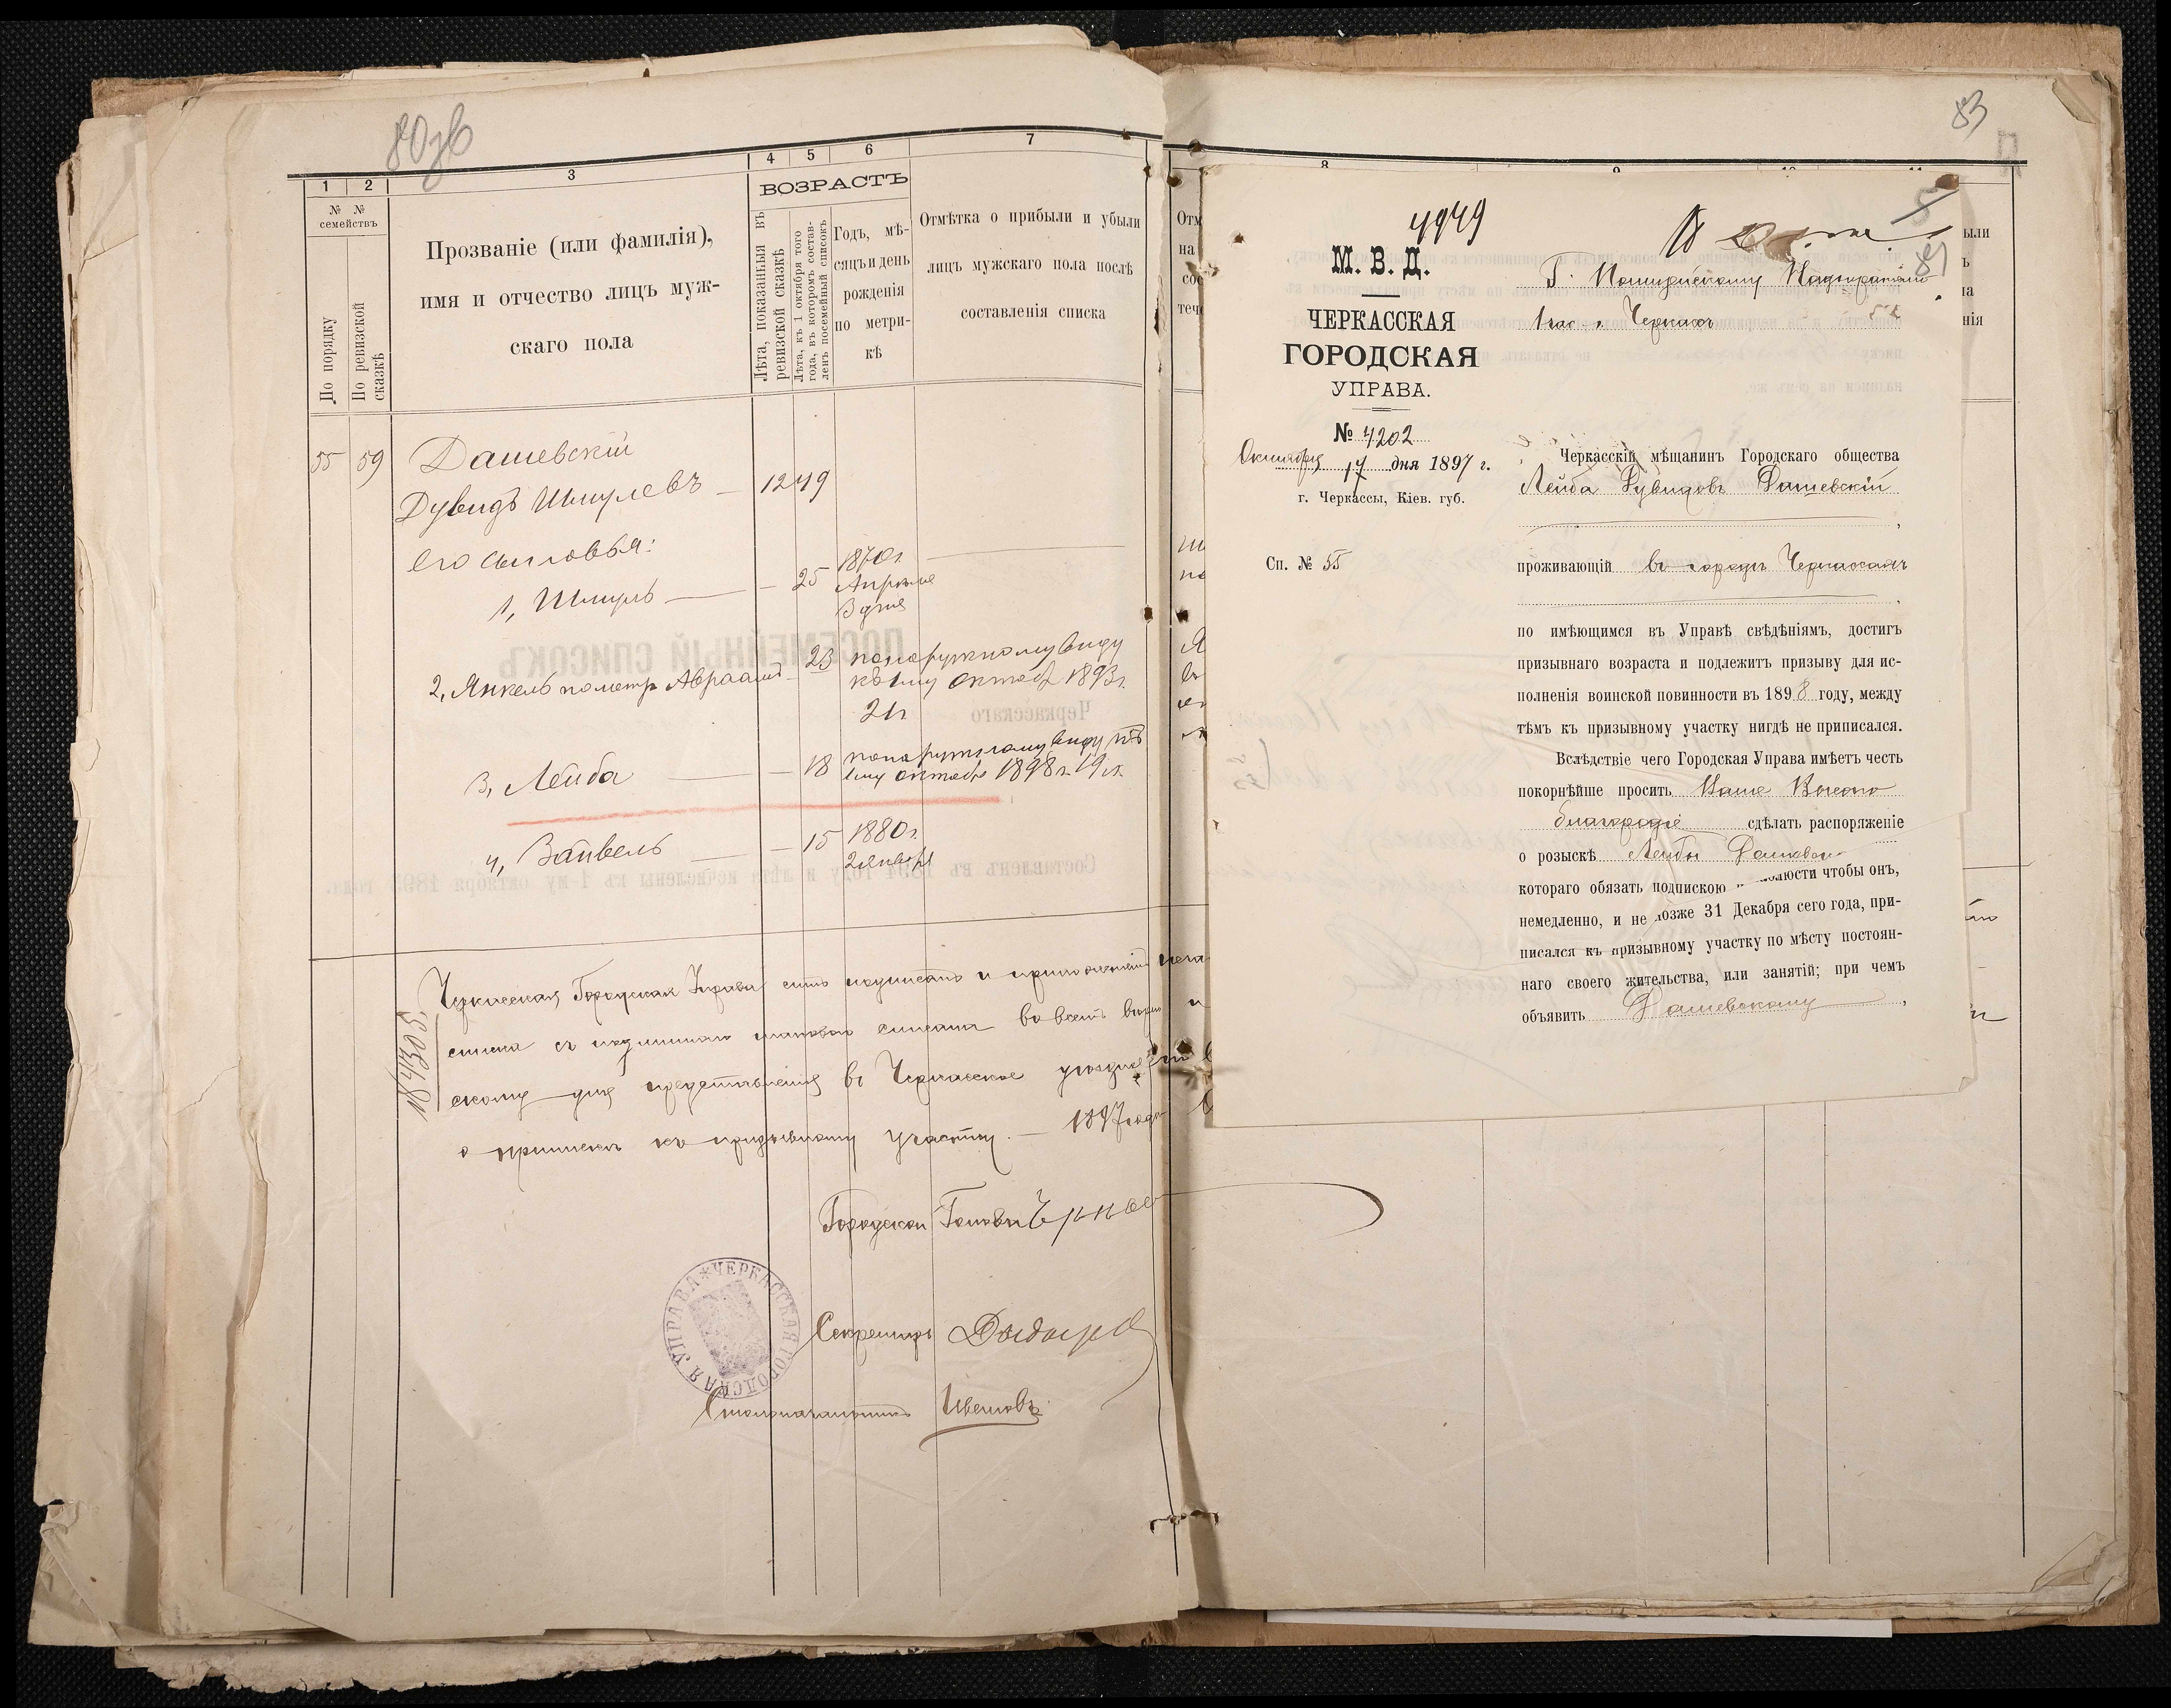 80зв
1 2 3 4 5 6 7
№ № семействъ
По порядку
По ревизской сказкѣ
Прозваніе (или фамилія),
имя и отчество лицъ муж-
скаго пола
ВОЗРАСТЪ
Лѣта, показанныя въ
ревизской сказкѣ
Лѣта, къ 1 октября того
года, въ которомъ состав-
ленъ посемейный списокъ
Годъ, мѣ-
сяцъ и день
рожденія
по метри-
кѣ
Отмѣтка о прибыли и убыли
лицъ мужскаго пола послѣ
составленія списка
55 59 Дашевскій
Дувидъ Шмулевъ — 12 49
его сыновья:
1, Шмуль — 25 1870 г.
Апрѣля
3 дня
2, Янкель по метр Авраамъ — 23 по наружному виду
къ 1му октяб 1893 г.
21 г
3, Лейба — 18 по наружному виду къ
1му октября 1898 г. 19 л.
4, Зайвель — 15 1880 г.
2 января
Черкасская Городская Управа симъ подписомъ и приложеніемъ печа
списка съ подлиннымъ таковымъ списана во всемъ вѣрна и
скому для представленія въ Черкасское уѣздное
о припискѣ къ призывному участку. — 1897 года
Городской Голова
Секретарь
Столоначальникъ Цвѣтковъ
ЧЕРКАССКАЯ ГОРОДСКАЯ УПРАВА
83
8 9 10 11
4949
М. В. Д.
ЧЕРКАССКАЯ
ГОРОДСКАЯ
УПРАВА.
№ 4202
Октября 17 дня 1897 г.
г. Черкассы, Кіев. губ.
Сп. № 55
Г. Полицейскому Надзирателю
1 час. г. Черкассъ
Черкасскій мѣщанинъ Городскаго общества
Лейба Дувидовъ Дашевскій
проживающій въ городѣ Черкассахъ
по имѣющимся въ Управѣ свѣдѣніямъ, достигъ
призывнаго возраста и подлежитъ призыву для ис-
полненія воинской повинности въ 1898 году, между
тѣмъ къ призывному участку нигдѣ не приписался.
Вслѣдствіе чего Городская Управа имѣетъ честь
покорнѣйше просить Ваше Высоко
благородіе сдѣлать распоряженіе
о розыскѣ Лейбы Дашевскаго
котораго обязать подпискою чтобы онъ,
немедленно, и не позже 31 Декабря сего года, при-
писался къ призывному участку по мѣсту постоян-
наго своего жительства, или занятій; при чемъ
объявить Дашевскому